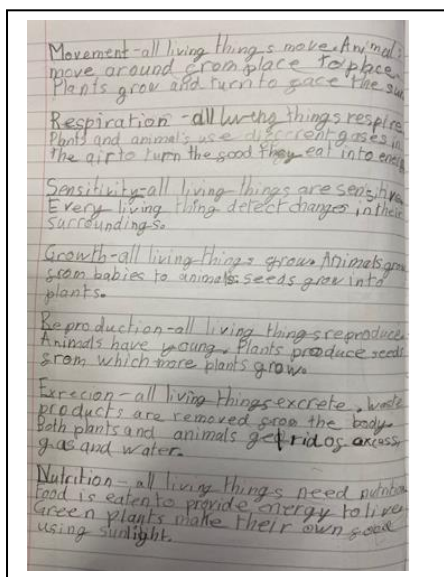 Movement - all living things move. Animals
move around from place to place.
Plants grow and turn to face the sun.
Respiration - all living things respire.
Plants and animals use different gases in
the air to turn the food they eat into energy
Sensitivity - all living things are sensitive.
Every living thing detect changes in their
surroundings.
Growth - all living things grow. Animals grow
from babies to animals. seeds grow into
plants.
Reproduction - all living things reproduce.
Animals have young. Plants produce seeds
from which more plants grow.
Exrecion - all living things excrete. waste
products are removed from the body.
Both plants and animals get rid of excess
gas and water.
Nutrition - all living things need nutrition
Food is eaten to provide energy to live.
Green plants make their own food
using sunlight.